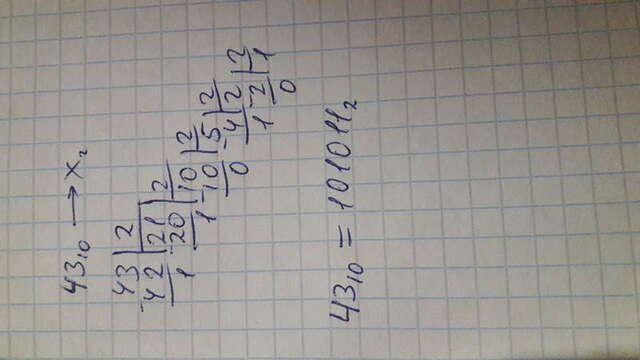 43₁₀ → x₂
43 | 2
-42 | 21 | 2
1 -20 | 10 | 2
1 -10 | 5 | 2
0 -4 | 2 | 2
1 -2 | 1
0
43₁₀ = 101011₂